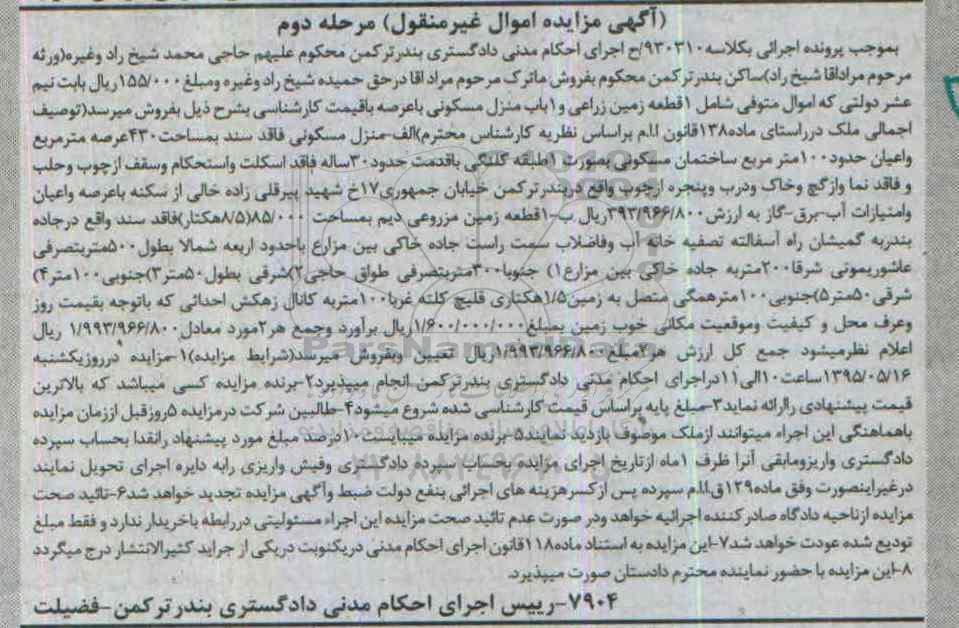 (آگهی مزایده اموال غیرمنقول) مرحله دوم
بموجب پرونده اجرائی بکلاسه ۹۳۰۳۱۰/ج اجرای احکام مدنی دادگستری بندرترکمن محکوم علیهم حاجی محمد شیخ راد وغیره(ورثه
مرحوم مراداقا شیخ راد)ساکن بندرترکمن محکوم بفروش ماترک مرحوم مراد اقا درحق حمیده شیخ راد وغیره ومبلغ ۱۵۵/۰۰۰ریال بابت نیم
عشر دولتی که اموال متوفی شامل ۱قطعه زمین زراعی و۱باب منزل مسکونی باعرصه باقیمت کارشناسی بشرح ذیل بفروش میرسد(توصیف
اجمالی ملک درراستای ماده۱۳۸قانون ا.ا.م براساس نظریه کارشناس محترم)الف-منزل مسکونی فاقد سند بمساحت۴۳۰عرصه مترمربع
واعیان حدود۱۰۰متر مربع ساختمان مسکونی بصورت ۱طبقه گلنگی باقدمت حدود۳۰ساله فاقد اسکلت واستحکام وسقف ازچوب وحلب
و فاقد نما وازگچ وخاک ودرب وپنجره ازچوب واقع دربندرترکمن خیابان جمهوری۱۷خ شهید پیرقلی زاده خالی از سکنه باعرصه واعیان
وامتیازات آب-برق-گاز به ارزش۳۹۳/۹۶۶/۸۰۰ریال ب-۱قطعه زمین مزروعی دیم بمساحت ۸۵/۰۰۰(۸/۵هکتار)فاقد سند واقع درجاده
بندربه گمیشان راه آسفالته تصفیه خانه آب وفاضلاب سمت راست جاده خاکی بین مزارع باحدود اربعه شمالا بطول۵۰۰متربتصرفی
عاشوریموتی شرقا۲۰۰متربه جاده خاکی بین مزارع۱) جنوبا۳۰۰متربتصرفی طواق حاجی۲)شرقی بطول۵۰متر۳)جنوبی۱۰۰متر۴)
شرقی۵۰متر۵)جنوبی۱۰۰مترهمگی متصل به زمین۱/۵هکتاری قلیچ کلته غربا۱۰۰متربه کانال زهکش احداثی که باتوجه بقیمت روز
وعرف محل و کیفیت وموقعیت مکانی خوب زمین بمبلغ۱/۶۰۰/۰۰۰/۰۰۰ریال برآورد وجمع هر۲مورد معادل۱/۹۹۳/۹۶۶/۸۰۰ ریال
اعلام نظرمیشود جمع کل ارزش هر۲مبلغ۱/۹۹۳/۹۶۶/۸۰۰ریال تعیین وبفروش میرسد(شرایط مزایده)۱-مزایده درروزیکشنبه
۱۳۹۵/۰۵/۱۶ساعت۱۰الی۱۱دراجرای احکام مدنی دادگستری بندرترکمن انجام میپذیرد۲-برنده مزایده کسی میباشد که بالاترین
قیمت پیشنهادی راارائه نماید۳-مبلغ پایه براساس قیمت کارشناسی شده شروع میشود۴-طالبین شرکت درمزایده ۵روزقبل اززمان مزایده
باهماهنگی این اجراء میتوانند ازملک موصوف بازدید نمایند۵-برنده مزایده میبایست۱۰درصد مبلغ مورد پیشنهاد رانقدا بحساب سپرده
دادگستری واریزومابقی آنرا ظرف ۱ماه ازتاریخ اجرای مزایده بحساب سپرده دادگستری وفیش واریزی رابه دایره اجرای تحویل نمایند
درغیراینصورت وفق ماده۱۲۹ق.ا.ا.م سپرده پس ازکسرهزینه های اجرائی بنفع دولت ضبط وآگهی مزایده تجدید خواهد شد۶-تائید صحت
مزایده ازناحیه دادگاه صادرکننده اجرائیه خواهد ودر صورت عدم تائید صحت مزایده این اجراء مسئولیتی دررابطه باخریدار ندارد و فقط مبلغ
تودیع شده عودت خواهد شد۷-این مزایده به استناد ماده۱۱۸قانون اجرای احکام مدنی دریکنوبت دریکی از جراید کثیرالانتشار درج میگردد
۸-این مزایده با حضور نماینده محترم دادستان صورت میپذیرد.
۷۹۰۴-رییس اجرای احکام مدنی دادگستری بندرترکمن-فضیلت
ParsNamadData